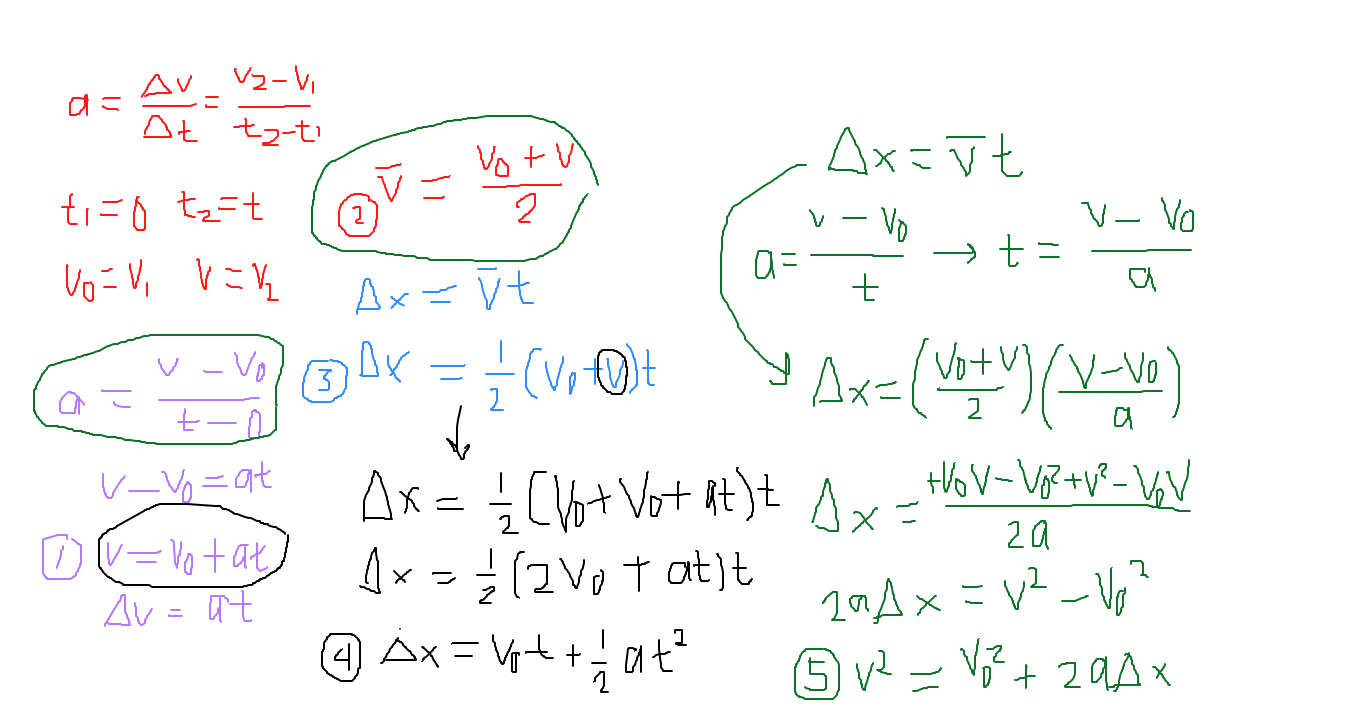 a = Δv/Δt = v₂ - v₁/t₂ - t₁
t₁ = 0 t₂ = t
v₀ = v₁ v = v₂
a = v - v₀/t - 0
v - v₀ = at
① v = v₀ + at
Δv = at
② v̅ = v₀ + v/2
Δx = v̅t
③ Δx = 1/2 (v₀ + v)t
↓
Δx = 1/2 (v₀ + v₀ + at)t
Δx = 1/2 (2v₀ + at)t
④ Δx = v₀t + 1/2 at²
Δx = v̅t
a = v - v₀/t → t = v - v₀/a
Δx = (v₀ + v/2)(v - v₀/a)
Δx = +v₀v - v₀² + v² - v₀v/2a
2aΔx = v² - v₀²
⑤ v² = v₀² + 2aΔx